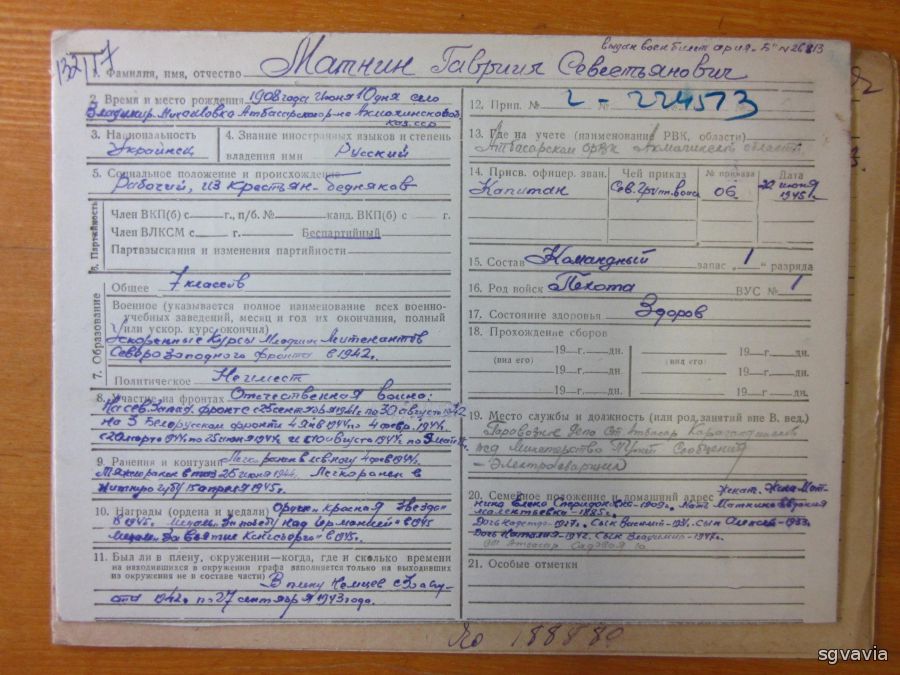 выдан воен. билет серия "Б" № 26813
132/Г7
1. Фамилия, имя, отчество Матнин Гавриил Севостьянович
2. Время и место рождения 1908 года Июня 10 дня село
Владимир. Михайловка Атбасарского р-на Акмолинской
Каз.ССР
3. Национальность
Украинец
4. Знание иностранных языков и степень
владения ими Русский
5. Социальное положение и происхождение
Рабочий, из крестьян-бедняков
6. Партийность
Член ВКП(б) с г., п/б. № канд. ВКП(б) с г.
Член ВЛКСМ с г. Беспартийный
Партвзыскания и изменения партийности
7. Образование
Общее 7 классов
Военное (указывается полное наименование всех военно-
учебных заведений, месяц и год их окончания, полный
или ускор. курс окончил)
Ускоренные курсы Младших Лейтенантов
Северо Западного фронта в 1942 г.
Политическое Не имеет
8. Участие на фронтах Отечественная война:
На Сев. Запад. фронте с 25 сентября 1941 г. по 30 августа 1942
на 3 Белорусском фронте 4 янв 1944 г. по 4 февр. 1944 г.
с 20 марта 1944 по 25 июня 1944 г. и с 10 августа 1944 г. по 9 мая
9. Ранения и контузии Легко ранен в ногу 4 фев 1944 г.
Тяжело ранен в таз 25 июня 1944. Легко ранен в
нижнюю губу 15 апреля 1945 г.
10. Награды (ордена и медали) Орден "Красная Звезда"
в 1945 г. Медаль "За победу над Германией" в 1945
Медаль "За взятие Кенгсберга" в 1945 г.
11. Был ли в плену, окружении—когда, где и сколько времени
на находившихся в окружении графа заполняется только на выходивших
из окружения не в составе части) В плену немцев с 30 авгу-
ста 1942 г. по 27 сентября 1943 года.
12. Прип. № 2-224573
13. Где на учете (наименование РВК, области)
Атбасарском рвк Акмолинской области
14. Присв. офицер. зван. Чей приказ № приказа Дата
Капитан Сев. Групп. войск 06 22 июня
1945 г.
15. Состав Командный запас „1“ разряда
16. Род войск Пехота ВУС № 1
17. Состояние здоровья Здоров
18. Прохождение сборов
19 г. дн. 19 г. дн.
(вид его) (вид его)
19 г. дн. 19 г. дн.
19 г. дн. 19 г. дн.
19. Место службы и должность (или род занятий вне В. вед.)
Паровозное Депо ст. Атбасар Карагандинской
жд Министерства Путей Сообщения
- Электросварщик
20. Семейное положение и домашний адрес Женат. Жена Мат-
нина Елена Спиридон. 1909 г. Мать Матнина Евдокия
1885 г.
Дочь Надежда-1927 г. Сын Василий-1931. Сын Алексей-1933
Дочь Наталия-1942. Сын Владимир-1947 г.
ст. Атбасар Садовая 10
21. Особые отметки
№ 188880
sgvavia